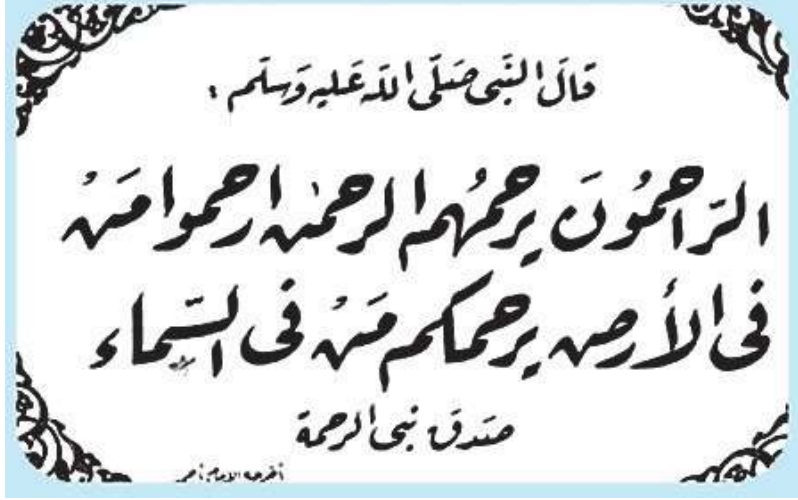 قَالَ النَّبِى صَلَّى اللّه عَليهِ وَسَلّم :
الرّاحمُونَ يرحمُهم الرحمٰن ارحموا مَنْ
فى الأرض يرحمكم مَنْ فى السّماء
صَدق نبى الرحمة
أخرجه الإمام أحمد